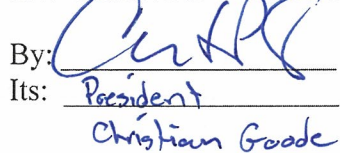 By:
Its: President
Christian Goode